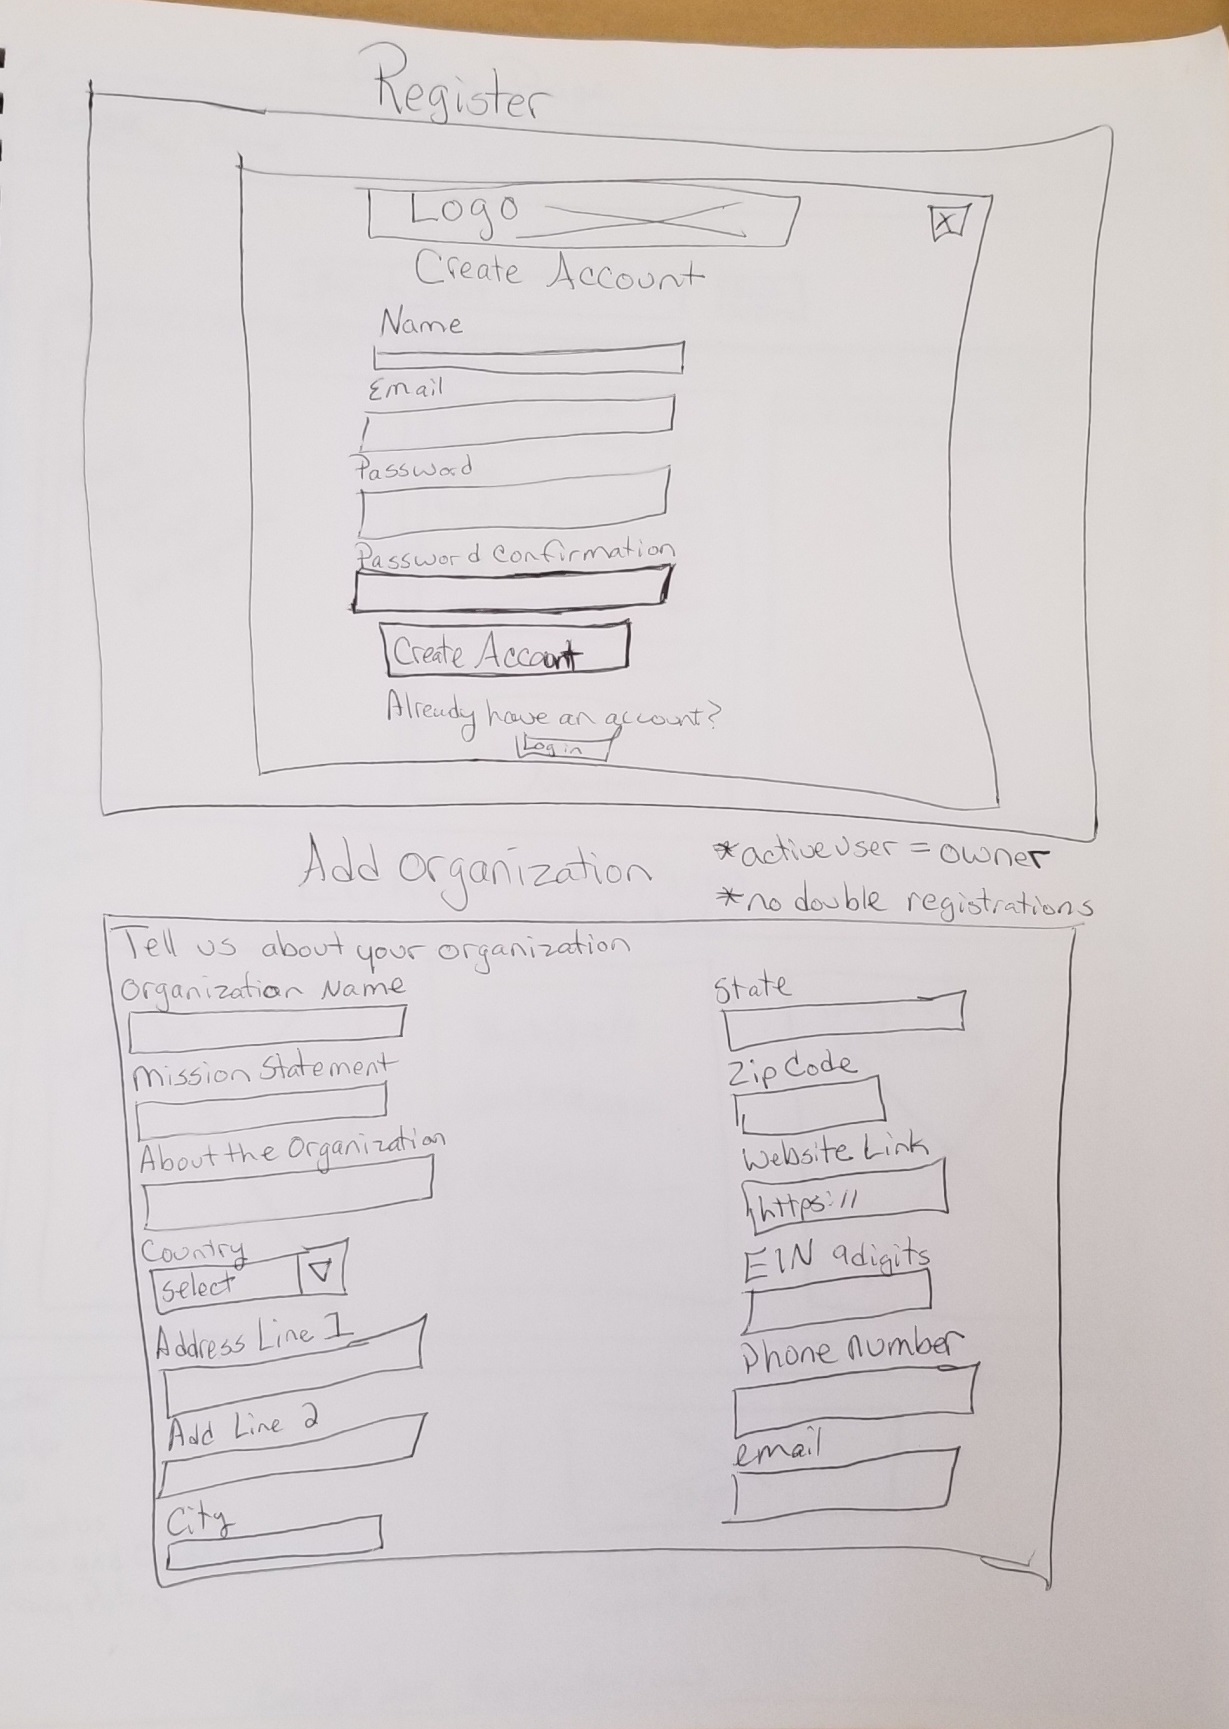 Register
Logo
X
Create Account
Name
Email
Password
Password Confirmation
Create Account
Already have an account?
Log in
Add Organization
*active user = owner
*no double registrations
Tell us about your organization
Organization Name
Mission Statement
About the Organization
Country
Select
Address Line 1
Add Line 2
City
State
Zip Code
Website Link
https://
EIN 9digits
Phone number
email